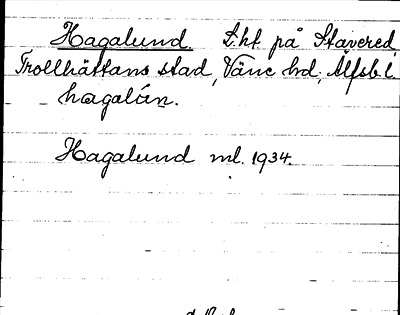 Hagalund. Lht på Stavered,
Trollhättans stad, Väne hd, Älfsb. l.
hagalún.
Hagalund ml. 1934.